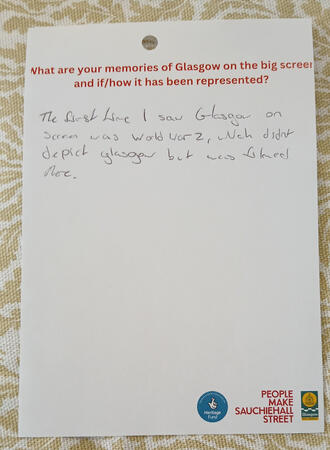 What are your memories of Glasgow on the big screen
and if/how it has been represented?
The first time I saw Glasgow on
screen was world war z, which didnt
depict glasgow but was filmed
there.
Heritage
Fund
PEOPLE
MAKE
SAUCHIEHALL
STREET